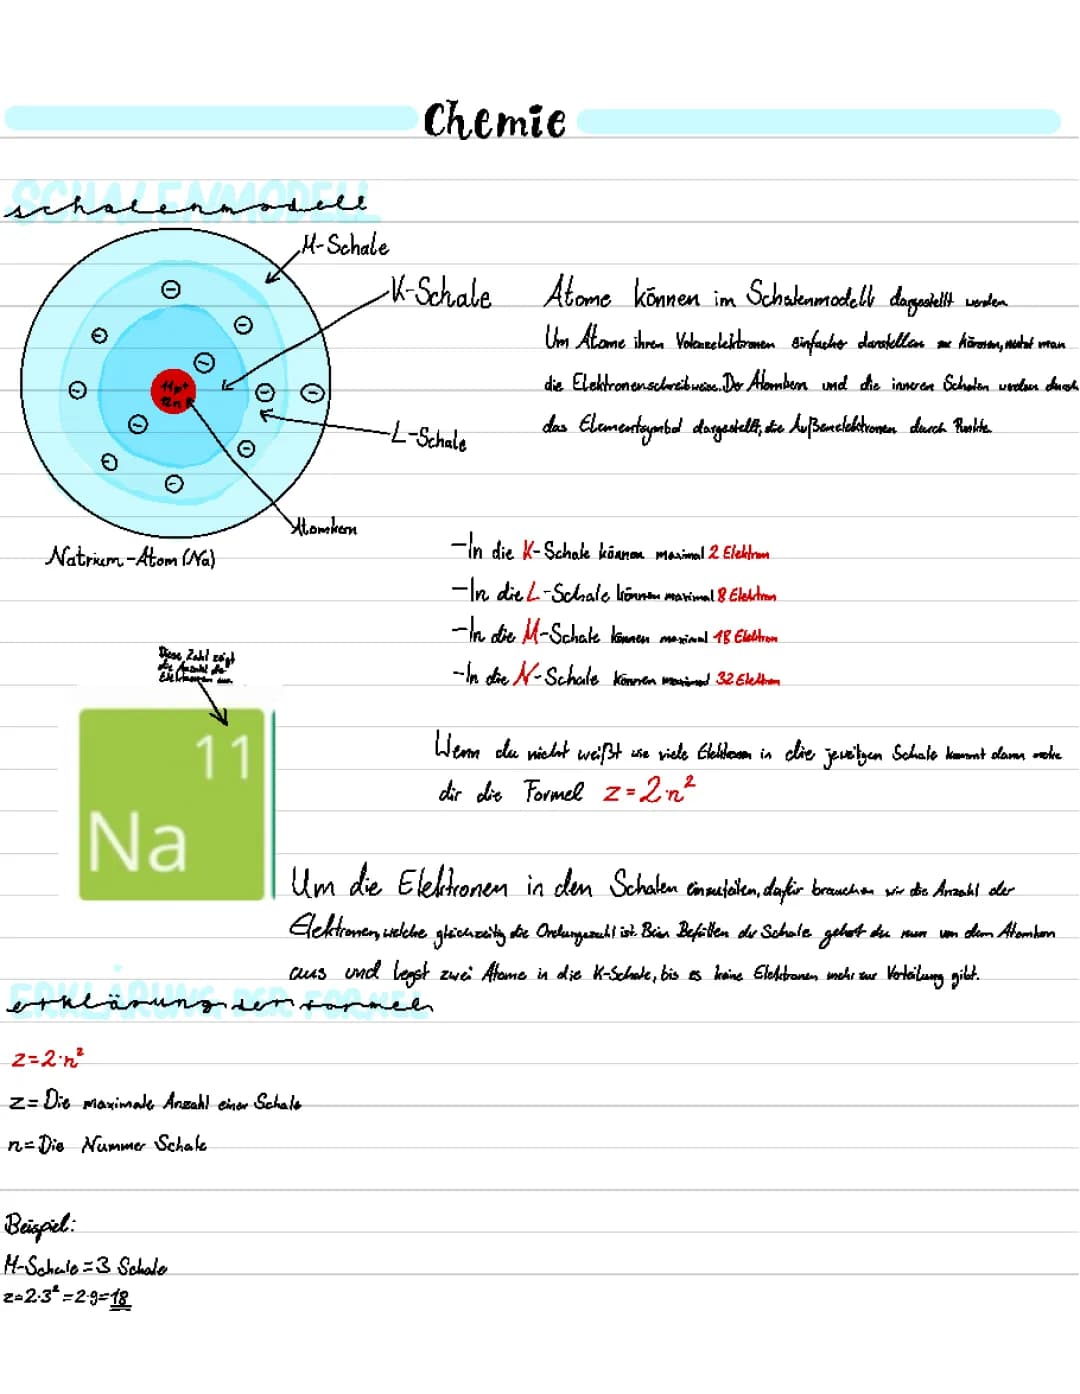 Chemie
SCHALENMODELL
schalenmodell
M-Schale
K-Schale
L-Schale
Atomkern
11p+
12n
Natrium-Atom (Na)
Atome können im Schalenmodell dargestellt werden
Um Atome ihren Valenzelektronen einfacher darstellen zu können, nutzt man
die Elektronenschreibweise. Der Atomkern und die inneren Schalen werden durch
das Elementsymbol dargestellt, die Außenelektronen durch Punkte.
-In die K-Schale können maximal 2 Elektron
-In die L-Schale können maximal 8 Elektron
-In die M-Schale können maximal 18 Elektron
-In die N-Schale können maximal 32 Elektron
Diese Zahl zeigt
die Anzahl der
Elektronen an.
11
Na
Wenn du nicht weißt wie viele Elektronen in die jeweiligen Schale kommt dann merke
dir die Formel z=2·n²
Um die Elektronen in den Schalen einzuteilen, dafür brauchen wir die Anzahl der
Elektronen, welche gleichzeitig die Ordnungszahl ist. Beim Befüllen der Schale gehst du nun von dem Atomkern
aus und legst zwei Atome in die K-Schale, bis es keine Elektronen mehr zur Verteilung gibt.
ERKLÄRUNG DER FORMEL
erklärung der formel
z=2·n²
z= Die maximale Anzahl einer Schale
n= Die Nummer Schale
Beispiel:
M-Schale = 3 Schale
z=2·3²=2·9=18